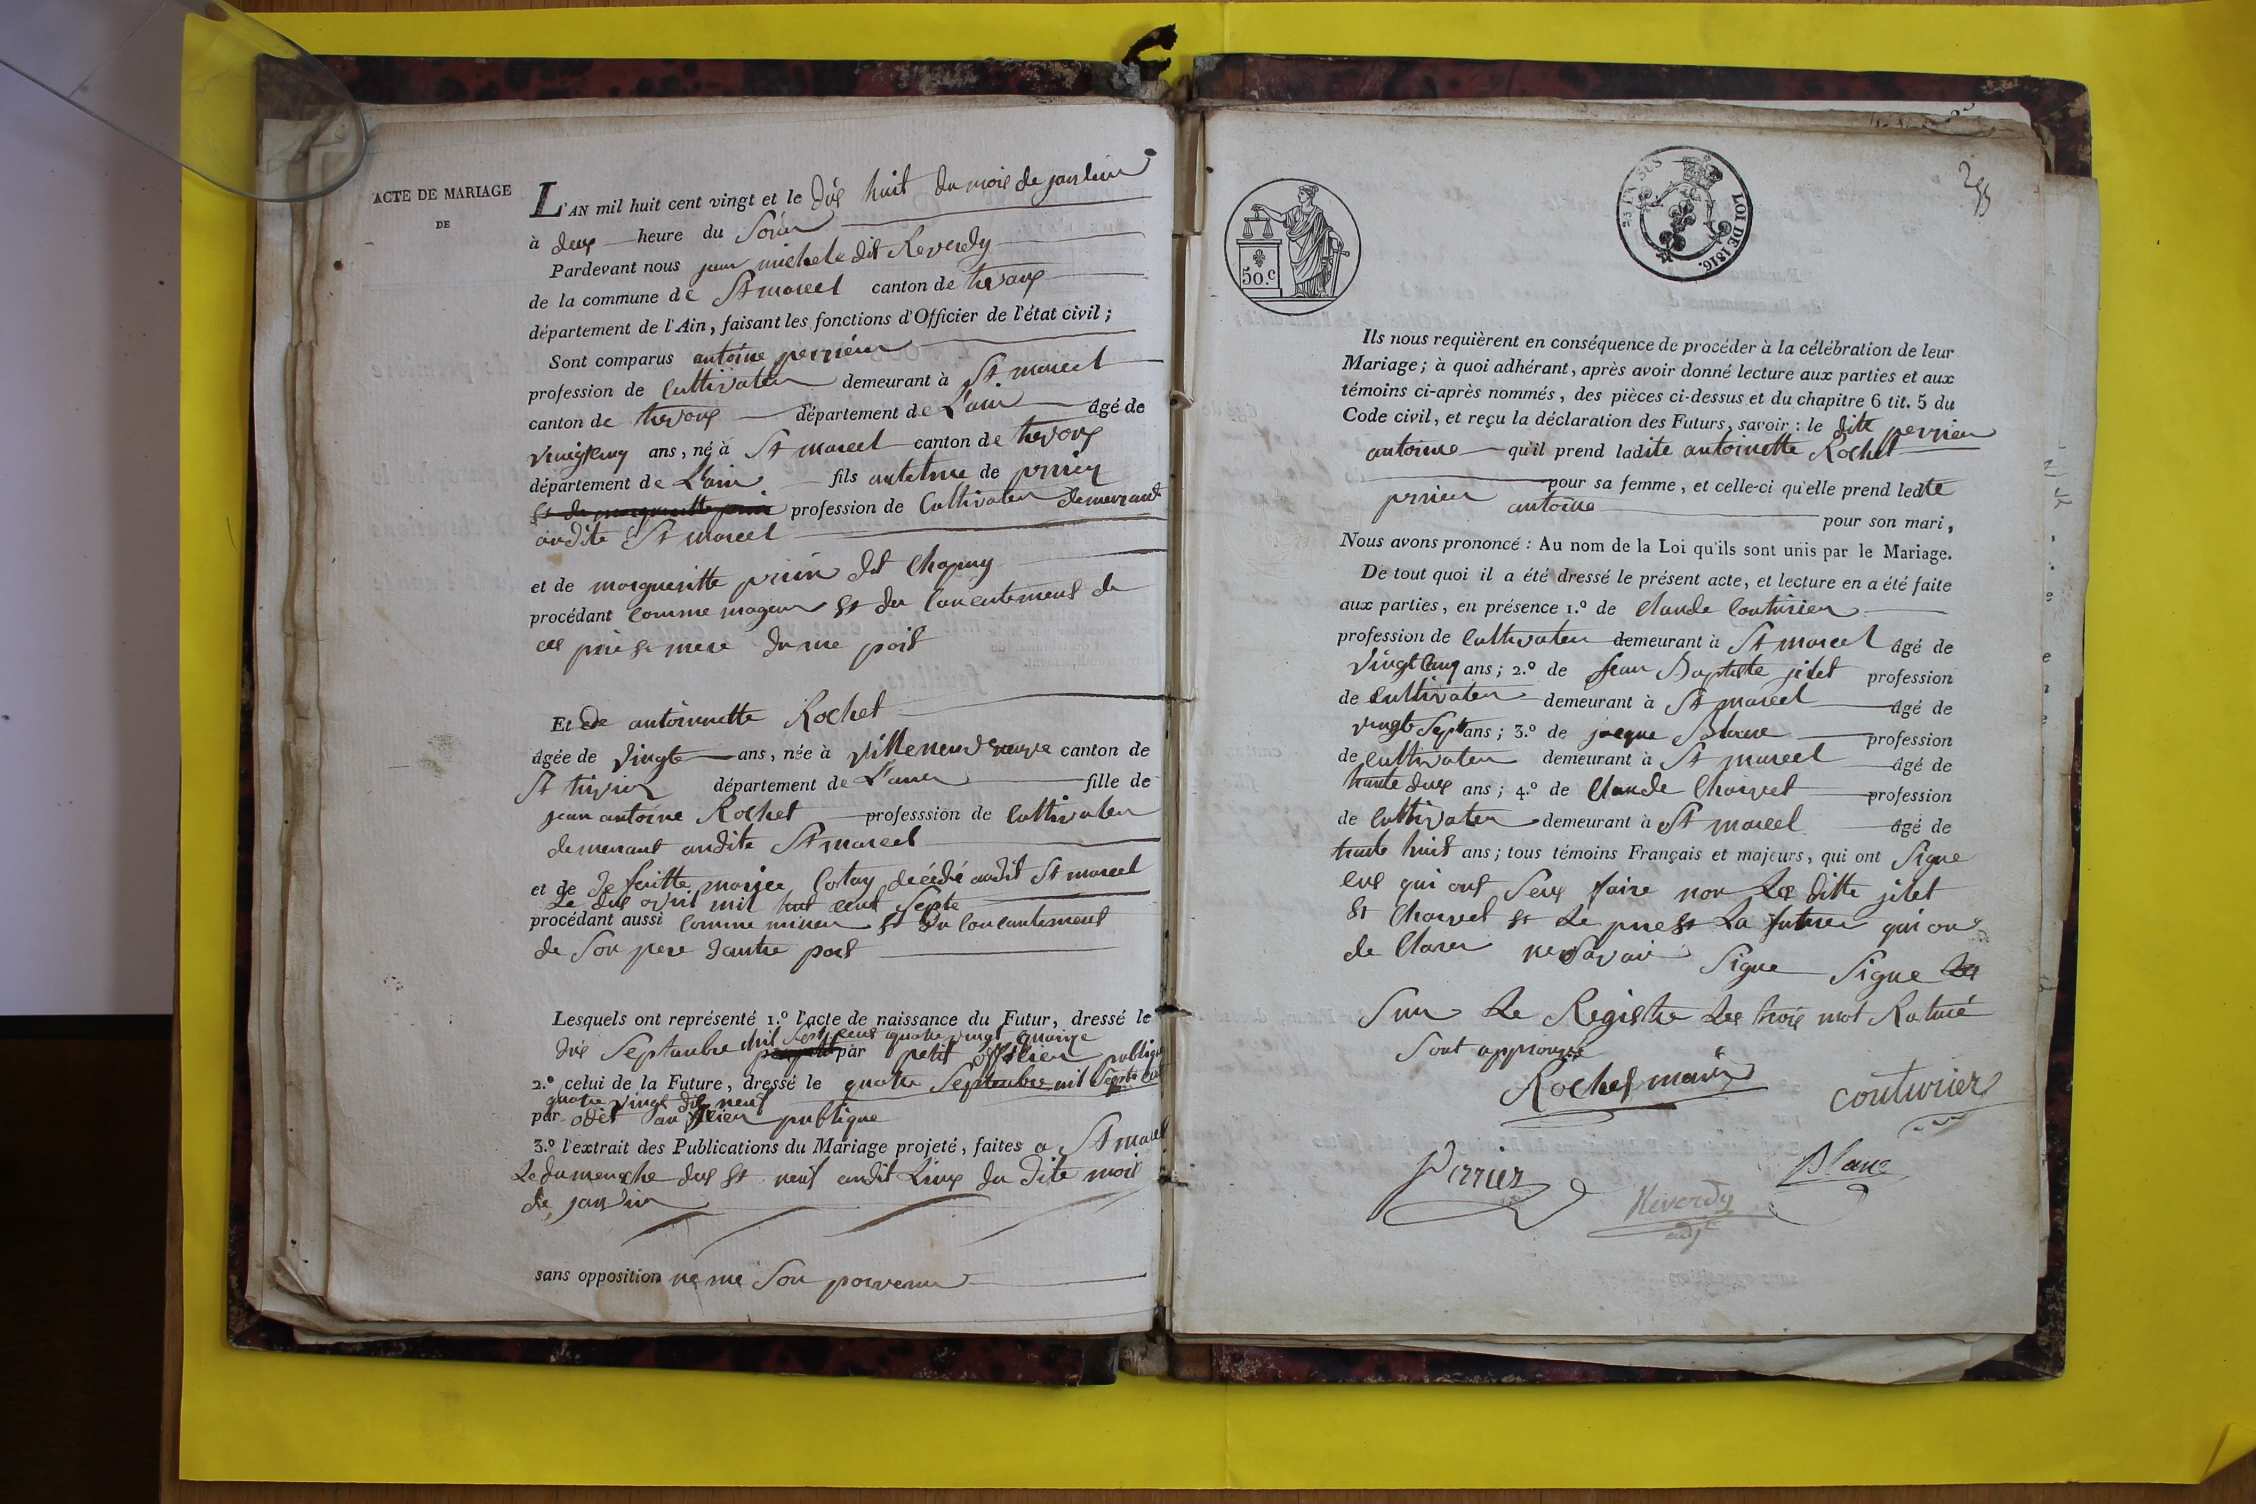 ACTE DE MARIAGE
DE
L'AN mil huit cent vingt et le dix huit du mois de janvier
à deux heure du Soir
Pardevant nous jean michel dit Reverdy
de la commune de St marcel canton de trevoux
département de l'Ain, faisant les fonctions d'Officier de l'état civil;
Sont comparus antoine perrier
profession de Cultivateur demeurant à St marcel
canton de trevoux département de L'ain âgé de
vingtcinq ans, né à St marcel canton de trevoux
département de L'ain fils de
profession de Cultivateur demeurant
audite St marcel
et de margueritte dit Chapuy
procédant comme mageur et du concentement de
ces père et mere d'une part
Et de antoinette Rochet
âgée de vingt ans, née à canton de
St trivier département de L'ain fille de
jean antoine Rochet professsion de Cultivateur
demeurant audite St marcel
et de décédé audit St marcel
Le dix avril mil huit cent Septe
procédant aussi comme mineur et du concentement
de Son pere d'autre part
Lesquels ont représenté 1.º l'acte de naissance du Futur, dressé le
dix Septembre mil Sept cent quatre vingt quatorze
par petit officier publique
2.º celui de la Future, dressé le quatre Septembre mil Septe cent
quatre vingt dix neuf
par odet officier publique
3.º l'extrait des Publications du Mariage projeté, faites a St marcel
Le dumenche deux et neuf audit Lieux du dite mois
de janvier
sans opposition ne me Son parvenu
50.c
LOI DE 1816.
295
Ils nous requièrent en conséquence de procéder à la célébration de leur
Mariage; à quoi adhérant, après avoir donné lecture aux parties et aux
témoins ci-après nommés, des pièces ci-dessus et du chapitre 6 tit. 5 du
Code civil, et reçu la déclaration des Futurs, savoir: le ditte perrier
antoine qu'il prend ladite antoinette Rochet
pour sa femme, et celle-ci qu'elle prend ledte
prrier antoine
pour son mari,
Nous avons prononcé: Au nom de la Loi qu'ils sont unis par le Mariage.
De tout quoi il a été dressé le présent acte, et lecture en a été faite
aux parties, en présence 1.º de Claude Couturier
profession de Cultivateur demeurant à St marcel âgé de
vingt Cinq ans; 2.º de jean Baptiste jilet profession
de Cultivateur demeurant à St marcel âgé de
vingt Sept ans; 3.º de jacque Blanc profession
de Cultivateur demeurant à St marcel âgé de
trante deux ans; 4.º de Claude Charvet profession
de Cultivateur demeurant à St marcel âgé de
trante huit ans; tous témoins Français et majeurs, qui ont Signe
eux qui ont Seux faire non Les ditte jilet
et Charvet et Le pere et La future qui on
de Clarer ne Savoir Signe Signe
Sur Le Registre Les trois mot Raturé
Sont approuvé
Rochet marie
couturier
Perrier
Blanc
Reverdy
adjt